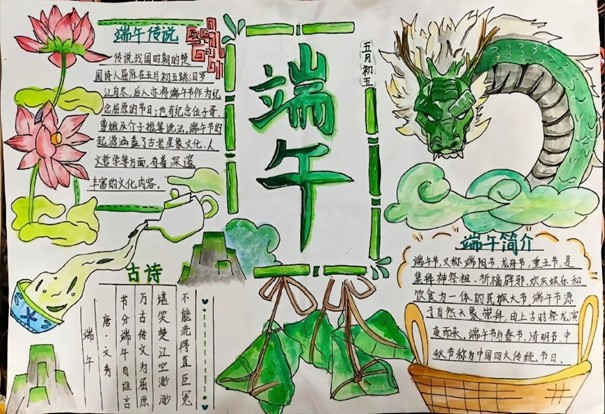 端午传说
传说战国时期的楚
国诗人屈原在五月初五跳汨罗
江自尽，后人亦将端午节作为纪
念屈原的节日；也有纪念伍子胥、
曹娥及介子推等说法，端午节的
起源涵盖了古老星象文化、人
文哲学等方面，有着深邃
丰富的文化内容。
端午
五月初五
古诗
端午
唐·文秀
节分端午自谁言
万古传文为屈原
堪笑楚江空渺渺
不能洗得直臣冤
端午简介
端午节，又称端阳节、龙舟节，重五节，是
集拜神祭祖、祈福辟邪、欢庆娱乐和
饮食为一体的民俗大节，端午节源
于自然天象崇拜，由上古时祭龙演
变而来，端午节与春节、清明节、中
秋节称为中国四大传统节日。